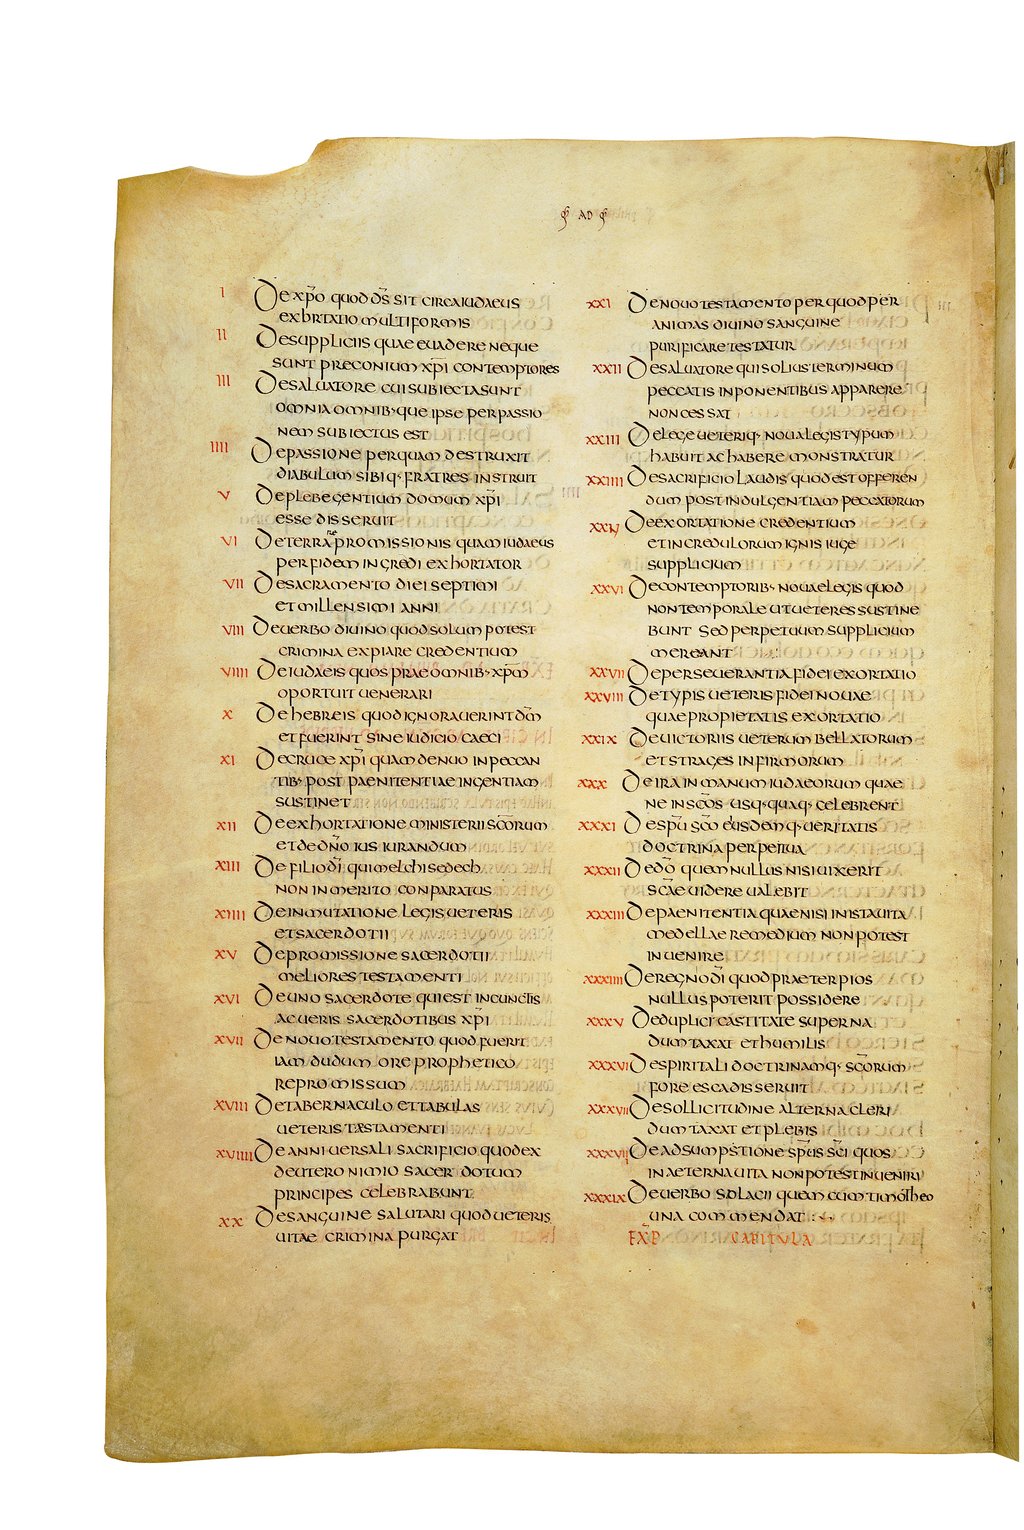 AD
I De xp̄o quod d̄s sit circa iudaeus
exhrtatio multiformis
II De suppliciis quae euadere neque
sunt preconium xp̄i contemptores
III De saluatore cui subiecta sunt
omnia omnib· que ipse per passio
nem subiectus est
IIII De passione per quam destruxit
diabulum sibiq· fratres instruit
V De plebe gentium domum xp̄i
esse disseruit
VI De terra promissionis quam iudaeus
per fidem ingredi exhortator
VII De sacramento diei septimi
et millensimi anni
VIII De uerbo diuino quod solum potest
crimina expiare credentium
VIIII De iudaeis quos prae omnib· xp̄m
oportuit uenerari
X De hebreis quod ignorauerint dm̄
et fuerint sine iudicio caeci
XI De cruce xp̄i quam denuo in peccan
tib· post paenitentiae ingentiam
sustinet
XII De exhortatione ministerii sc̄orum
et de dn̄o ius iurandum
XIII De filio dī qui melchisedech
non inmerito conparatus
XIIII De inmutatione legis ueteris
et sacerdotii
XV De promissione sacerdotii
meliores testamenti
XVI De uno sacerdote qui est in cunctis
ac ueris sacerdotibus xp̄i
XVII De nouo testamento quod fuerit
iam dudum ore prophetico
repromissum
XVIII De tabernaculo et tabulas
ueteris testamenti
XVIIII De anniuersali sacrificio quod ex
deutero nimio sacerdotum
principes celebrabunt
XX De sanguine salutari quod ueteris
uitae crimina purgat
XXI De nouo testamento per quod per
animas diuino sanguine
purificare testatur
XXII De saluatore qui solius terminum
peccatis inponentibus apparere
non cessat
XXIII De lege ueteriq· noua legis typum
habuit ac habere monstratur
XXIIII De sacrificio laudis quod est offeren
dum post indulgentiam peccatorum
XXV De exortatione credentium
et incredulorum ignis iuge
supplicium
XXVI De contemptorib· nouae legis quod
non temporale ut ueteres sustine
bunt sed perpetuum supplicium
mereant
XXVII De perseuerantia fidei exortatio
XXVIII De typis ueteris fidei nouae
quae propietatis exortatio
XXIX De uictoriis ueterum bellatorum
et strages infirmorum
XXX De ira in manum iudaeorum quae
ne in sc̄os usq· quaq· celebrent
XXXI De sp̄u sc̄o eiusdemq· ueritatis
doctrina perpetua
XXXII De dō quem nullus nisi uixerit
sc̄ae uidere ualebit
XXXIII De paenitentia quae nisi inistauita
medellae remedium non potest
inuenire
XXXIIII De regno dī quod praeter pios
nullus poterit possidere
XXXV De duplici castitate superna
dumtaxat et humilis
XXXVI De spiritali doctrinamq· sc̄orum
fore escadisseruit
XXXVII De sollicitudine alterna cleri
dumtaxat et plebis
XXXVIII De adsumpstione sp̄us sc̄i quos
in aeterna uita non potest inueniri
XXXIX De uerbo solacii quem cum timotheo
una commendat
EXP CAPITULA